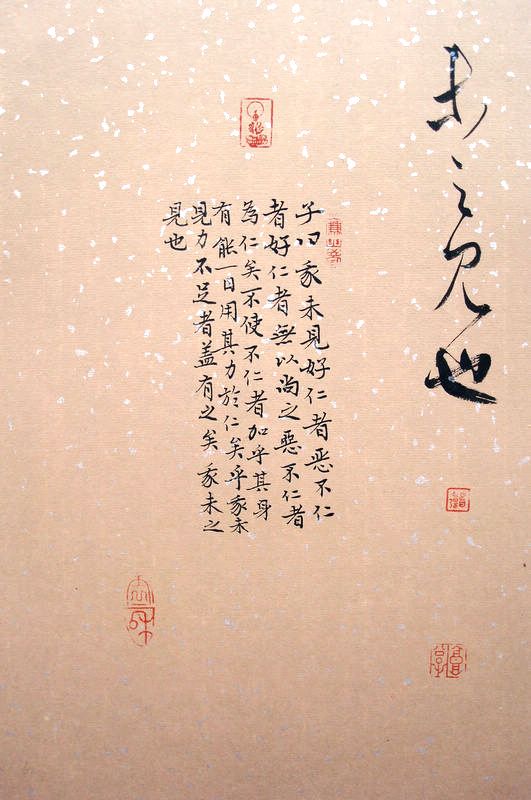 未之見也
子曰我未見好仁者惡不仁
者好仁者無以尚之惡不仁者
為仁矣不使不仁者加乎其身
有能一日用其力於仁矣乎我未
見力不足者蓋有之矣我未之
見也